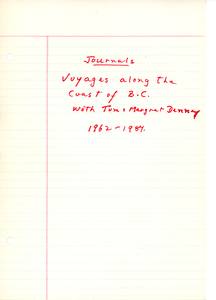 Journals
Voyages along the
Coast of B.C.
with Tom & Margret Denny
1962-1984.